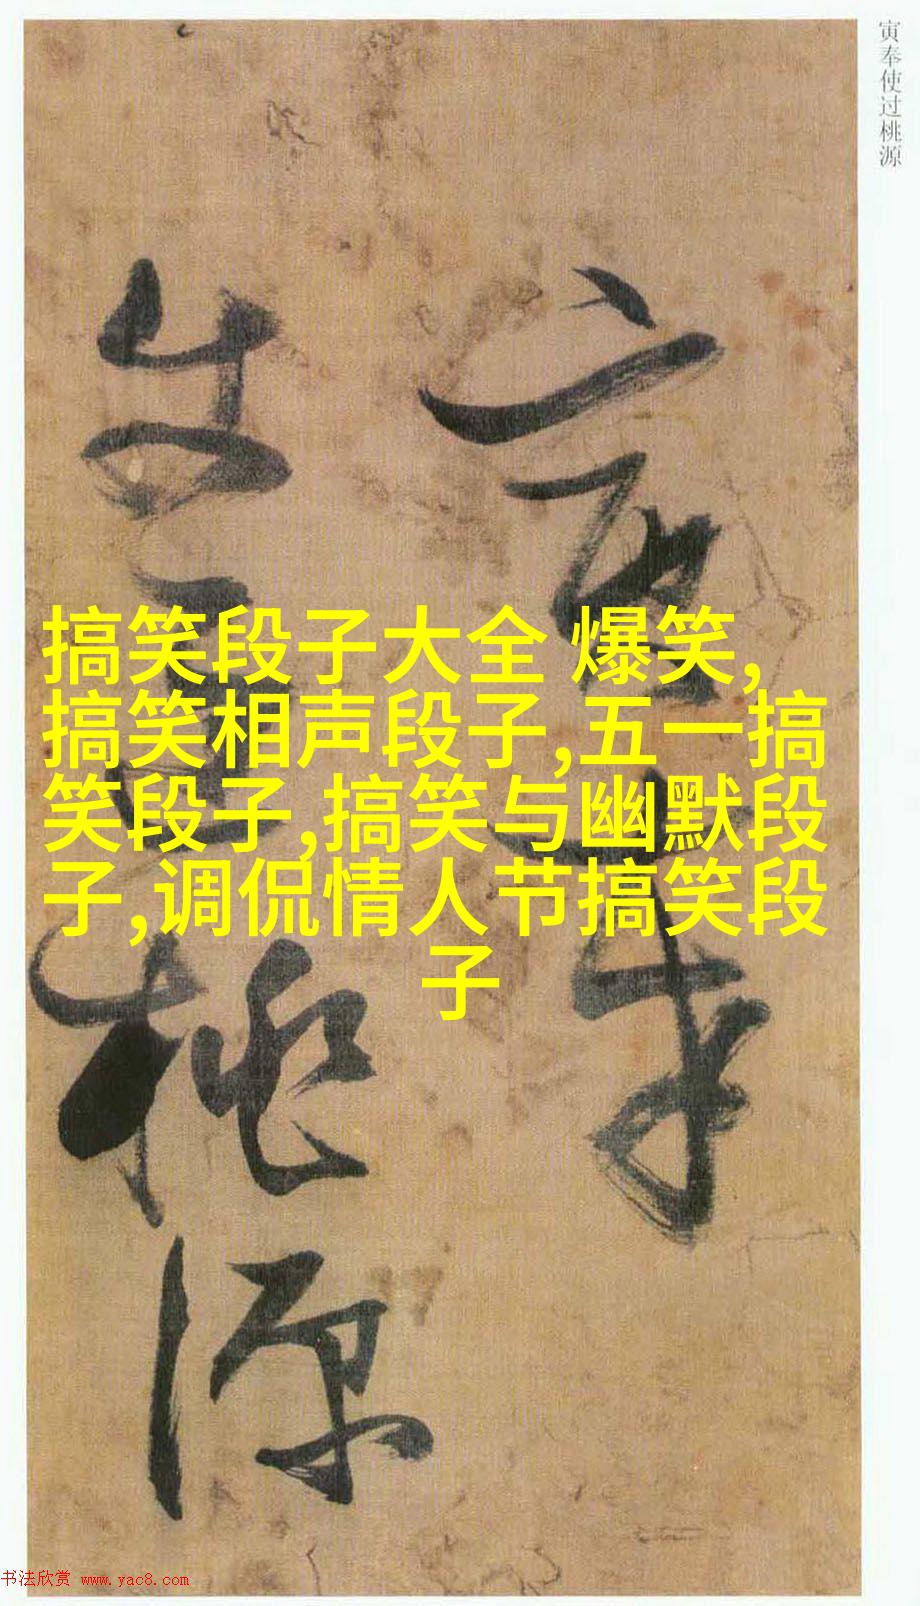 寅奉使过桃源
寅奉
使过桃源
搞笑段子大全 爆笑,
搞笑相声段子,五一搞
笑段子,搞笑与幽默段
子,调侃情人节搞笑段
子
书法欣赏 www.yac8.com